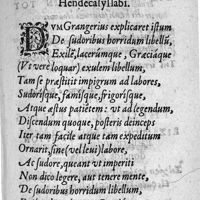 Hendecasyllabi.
DVm Grangerius explicaret istum
De sudoribus horridum libellũ,
Exilẽ, lacerúmque, Græciáque
(Vt verè loquar) exulem libellum,
Tam se præstitit impigrum ad labores,
Sudorísque, famísque, frigorísque,
Atque æstus patiētem: vt ad legendum,
Discendum quoque, posteris deinceps
Iter tam facile atque tam expeditum
Ornarit, sine (vel leui) labore,
Ac sudore, queant vt imperiti
Non dico legere, aut tenere mente,
De sudoribus horridum libellum,